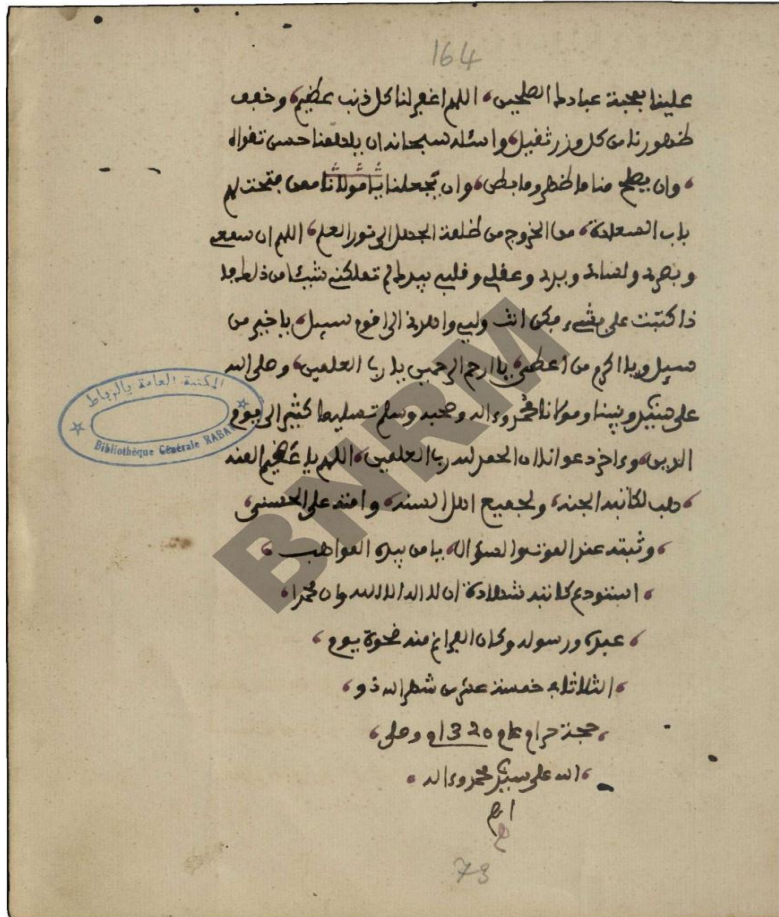 164
علينا بمحبة عبادك الصلحين، اللهم اغفر لنا كل ذنب عظيم، وخفف
ظهورنا من كل وزر ثقيل، واسئله سبحانه ان حسن تقواه
، وان يصلح منا ما ظهر وما بطن، وان تجعلنا يا مولانا ممن فتحت لهم
باب السعادة، من الخروج من ظلمة الجهل الى نور العلم، اللهم ان سمعي
وبصري ولساني ويدي وعقلي وقلبي بيدك لم تملكني شيئا من ذلك
ذا كتبت علي شيء فكن انت وليي واهدني الى اقوم سبيل، يا خير من
سيل ويا اكرم من اعطى، يا ارحم الرحمين يا رب العلمين، وصلى الله
على سيدنا ونبينا ومولانا محمد وءاله وصحبه وسلم تسليما كثيرا الى يوم
الدين، وءاخر دعوانا ان الحمد لله رب العلمين، اللهم يا عظيم المنه
، هب لكاتبه الجنه، ولجميع اهل السنه، وامته على الحسنى،
، وثبته عند الموت والسؤال، يا من بيده المواهب،
، استودع كاتبه شهادة ان لا اله الا الله وان محمدا،
، عبده ورسوله وكان الفراغ منه ضحوة يوم،
، الثلاثاء خمسة عشر من شهر الله ذو،
، حجة حرام عام 1320 وصلى،
، الله على سيدنا محمد وءاله،
اهـ
73
المكتبة العامة بالرباط
Bibliothèque Générale RABAT
BNRM